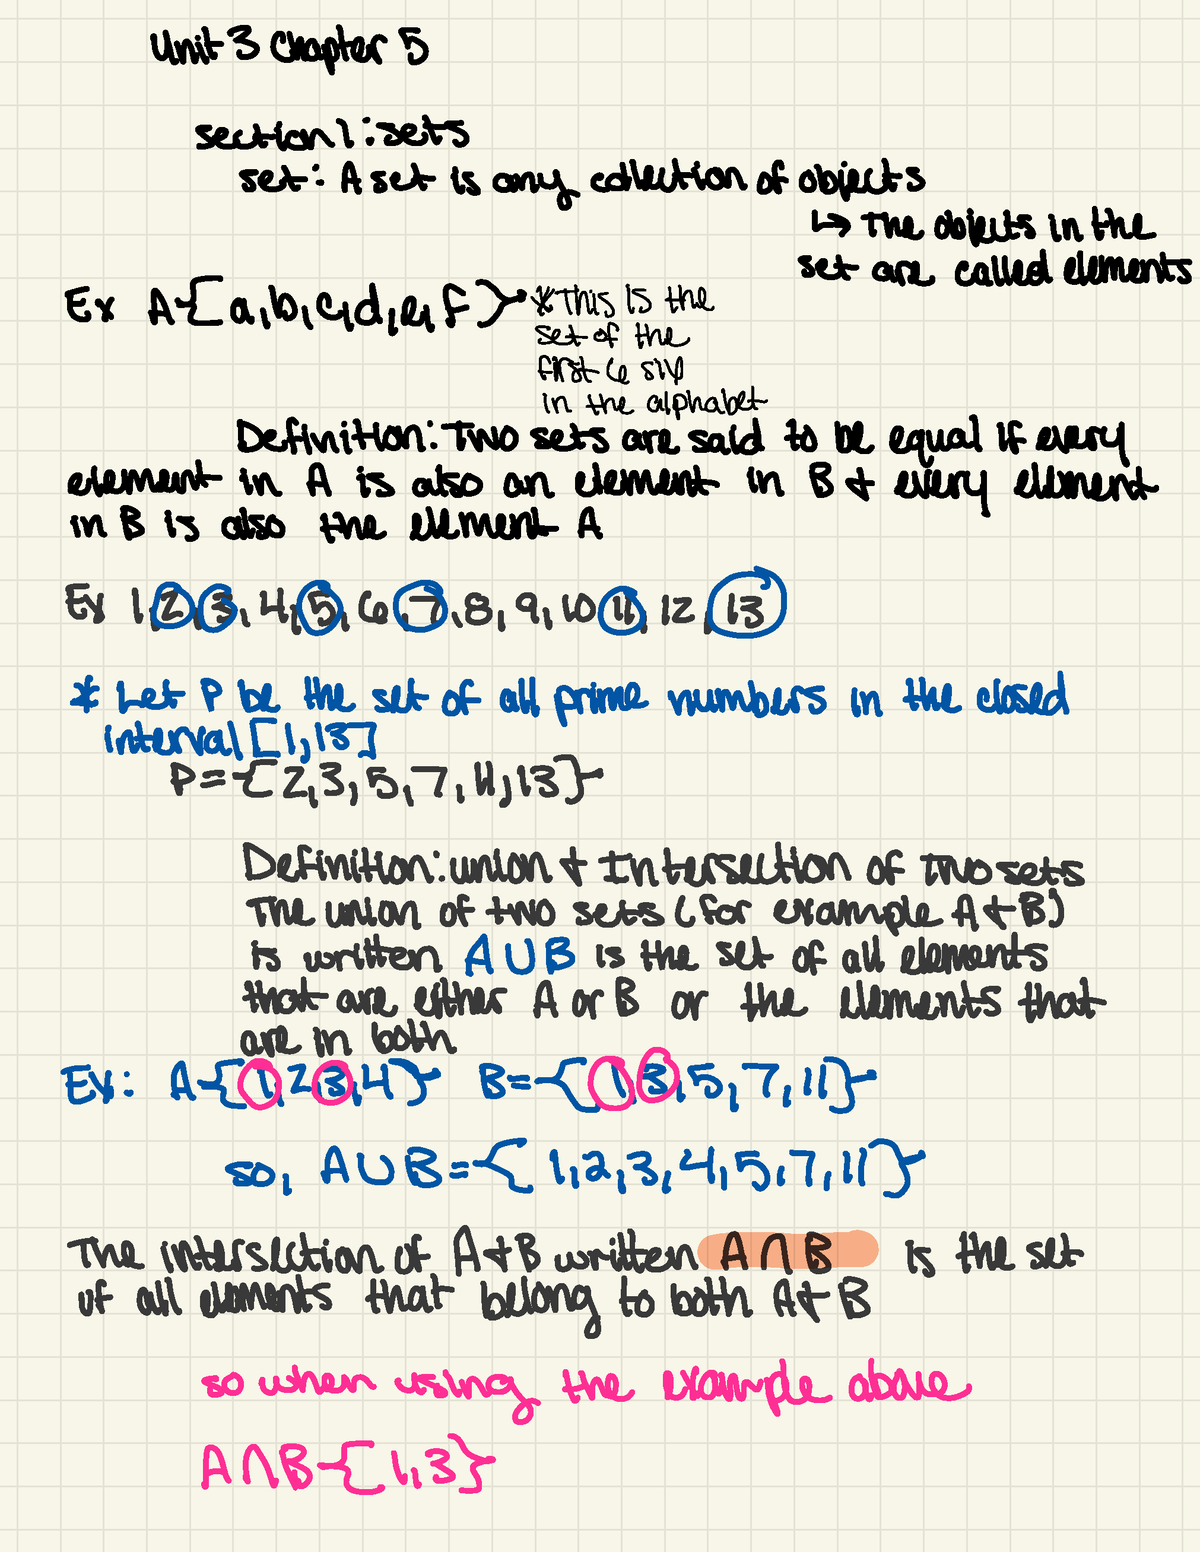 Unit 3 Chapter 5
section 1: sets
set: A set is any collection of objects
↳ The objects in the
set are called elements
Ex A{a,b,c,d,e,f} *This is the
set of the
first 6 six
in the alphabet
Definition: Two sets are said to be equal if every
element in A is also an element in B & every element
in B is also the element A
Ex 1,2,3,4,5,6,7,8,9,10,11,12,13
* Let P be the set of all prime numbers in the closed
interval [1,13]
P={2,3,5,7,11,13}
Definition: union & Intersection of Two sets
The union of two sets (for example A & B)
is written A∪B is the set of all elements
that are either A or B or the elements that
are in both
Ex: A{1,2,3,4} B={1,3,5,7,11}
so, A∪B={1,2,3,4,5,7,11}
The intersection of A & B written A∩B is the set
of all elements that belong to both A & B
so when using the example above
A∩B{1,3}